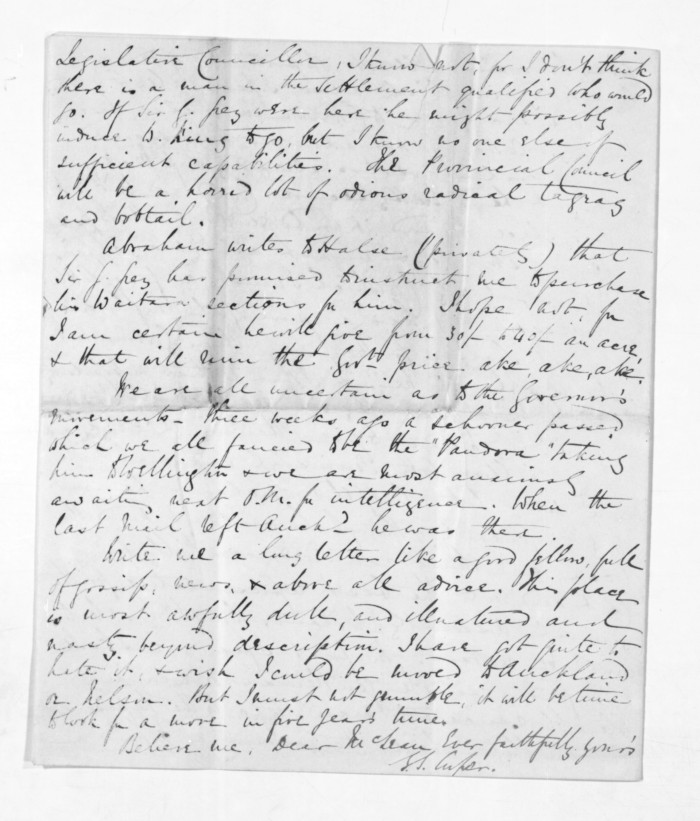 Legislative Councillor, I know not, for I don't think
there is a man in the settlement qualified who would
go. If Sir G. Grey were here he might possibly
induce W. King to go, but I know no one else of
sufficient capabilities. The Provincial Council
will be a horrid lot of odious radical tagrag
and bobtail.
Abraham writes to Halse (privately) that
Sir G. Grey has promised to instruct me to purchase
his Waitara sections for him. I hope not, for
I am certain he will give from 30/- to 40/- an acre,
& that will ruin the Govt. price ake, ake, ake.
We are all uncertain as to the Governor's
movements - three weeks ago a schooner passed
which we all fancied to be the "Pandora" taking
him to Wellington & we are most anxiously
awaiting next O.M. for intelligence. When the
last Mail left Auckd. he was there
Write me a long letter like a good fellow, full
of gossip, news, & above all advice. This place
is most awfully dull, and illnatured and
nasty beyond description. I have got quite to
hate it, & wish I could be moved to Auckland
or Nelson. But I must not grumble, it will be time
to look for a move in five years time.
Believe me, Dear McLean, Ever faithfully yours